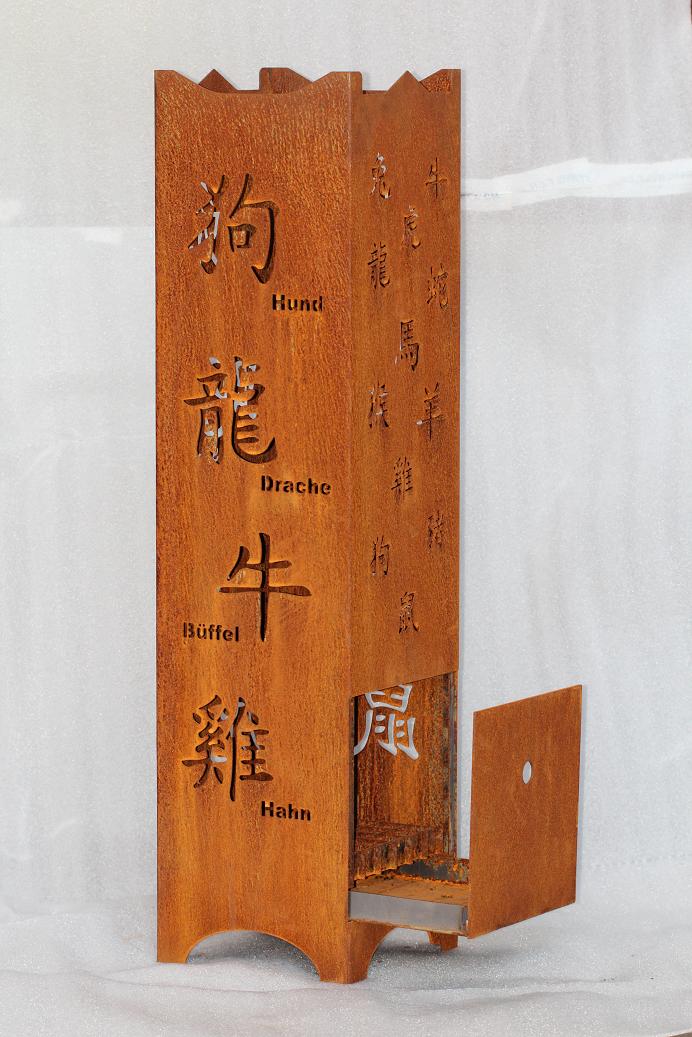 狗
Hund
龍
Drache
牛
Büffel
雞
Hahn
兔
牛
虎
龍
蛇
馬
猴
羊
雞
豬
狗
鼠
鼠